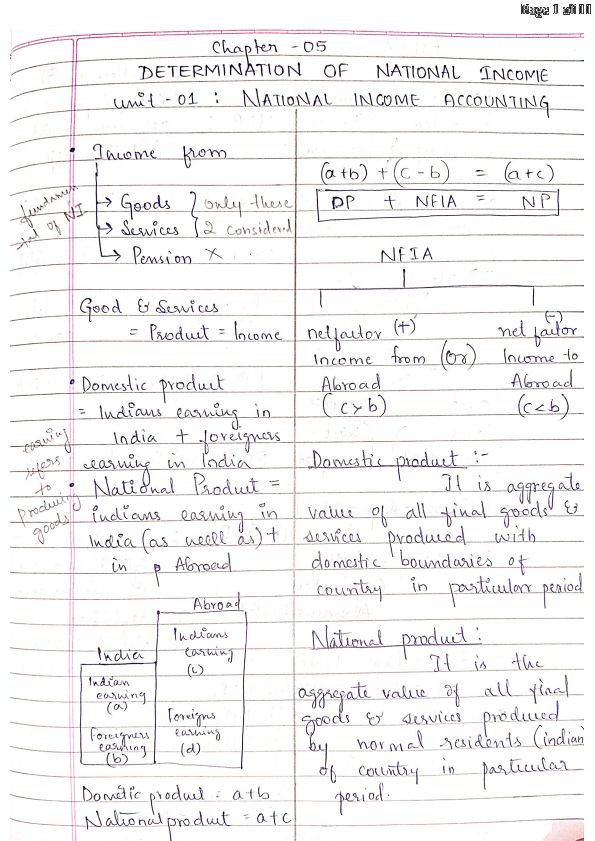 Page 1 of 11
Chapter - 05
DETERMINATION OF NATIONAL INCOME
unit - 01 : NATIONAL INCOME ACCOUNTING
• Income from
→ Goods } only these
→ Services } 2 considered
→ Pension ✗
fundamen
tal of NI
Good & Services
= Product = Income
• Domestic product
= Indians earning in
India + foreigners
earning in India
earning
refers
to
producing
goods
• National Product =
indians earning in
India (as well as) +
in Abroad
Abroad
Indians
earning
(c)
India
Indian
earning
(a)
Foreigners
earning
(b)
Foreigns
earning
(d)
Dometic product = a+b
National product = a+c
(a+b) + (c-b) = (a+c)
DP + NFIA = NP
NFIA
net factor (+)
Income from (or)
Abroad
(c>b)
(-)
net factor
Income to
Abroad
(c<b)
Domestic product :-
It is aggregate
value of all final goods &
services produced with
domestic boundaries of
country in particular period
National product :
It is the
aggregate value of all final
goods & services produced
by normal residents (indian
of country in particular
period.